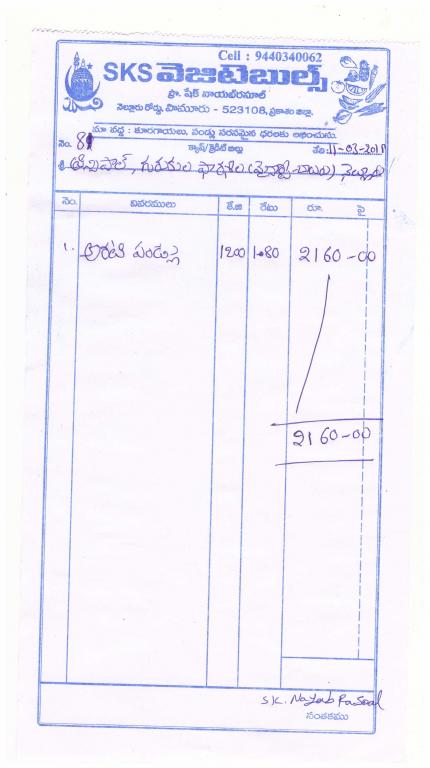 Cell : 9440340062
SKS వెజిటెబుల్స్
ప్రొ. షేక్ నాయబ్‌రసూల్
నెల్లూరు రోడ్డు, పామూరు - 523108, ప్రకాశం జిల్లా.
మా వద్ద : కూరగాయలు, పండ్లు సరసమైన ధరలకు లభించును.
నెం. 81 క్యాష్/క్రెడిట్ బిల్లు తేది: 11-03-2018
శ్రీ ప్రిన్సిపాల్, గురుకుల పాఠశాల నెల్లూరు
నెం. వివరములు కే.జి రేటు రూ. పై
1. అరటి పండ్లు 1200 1.80 2160-00
2160-00
S.K. Nayab Rasool
సంతకము